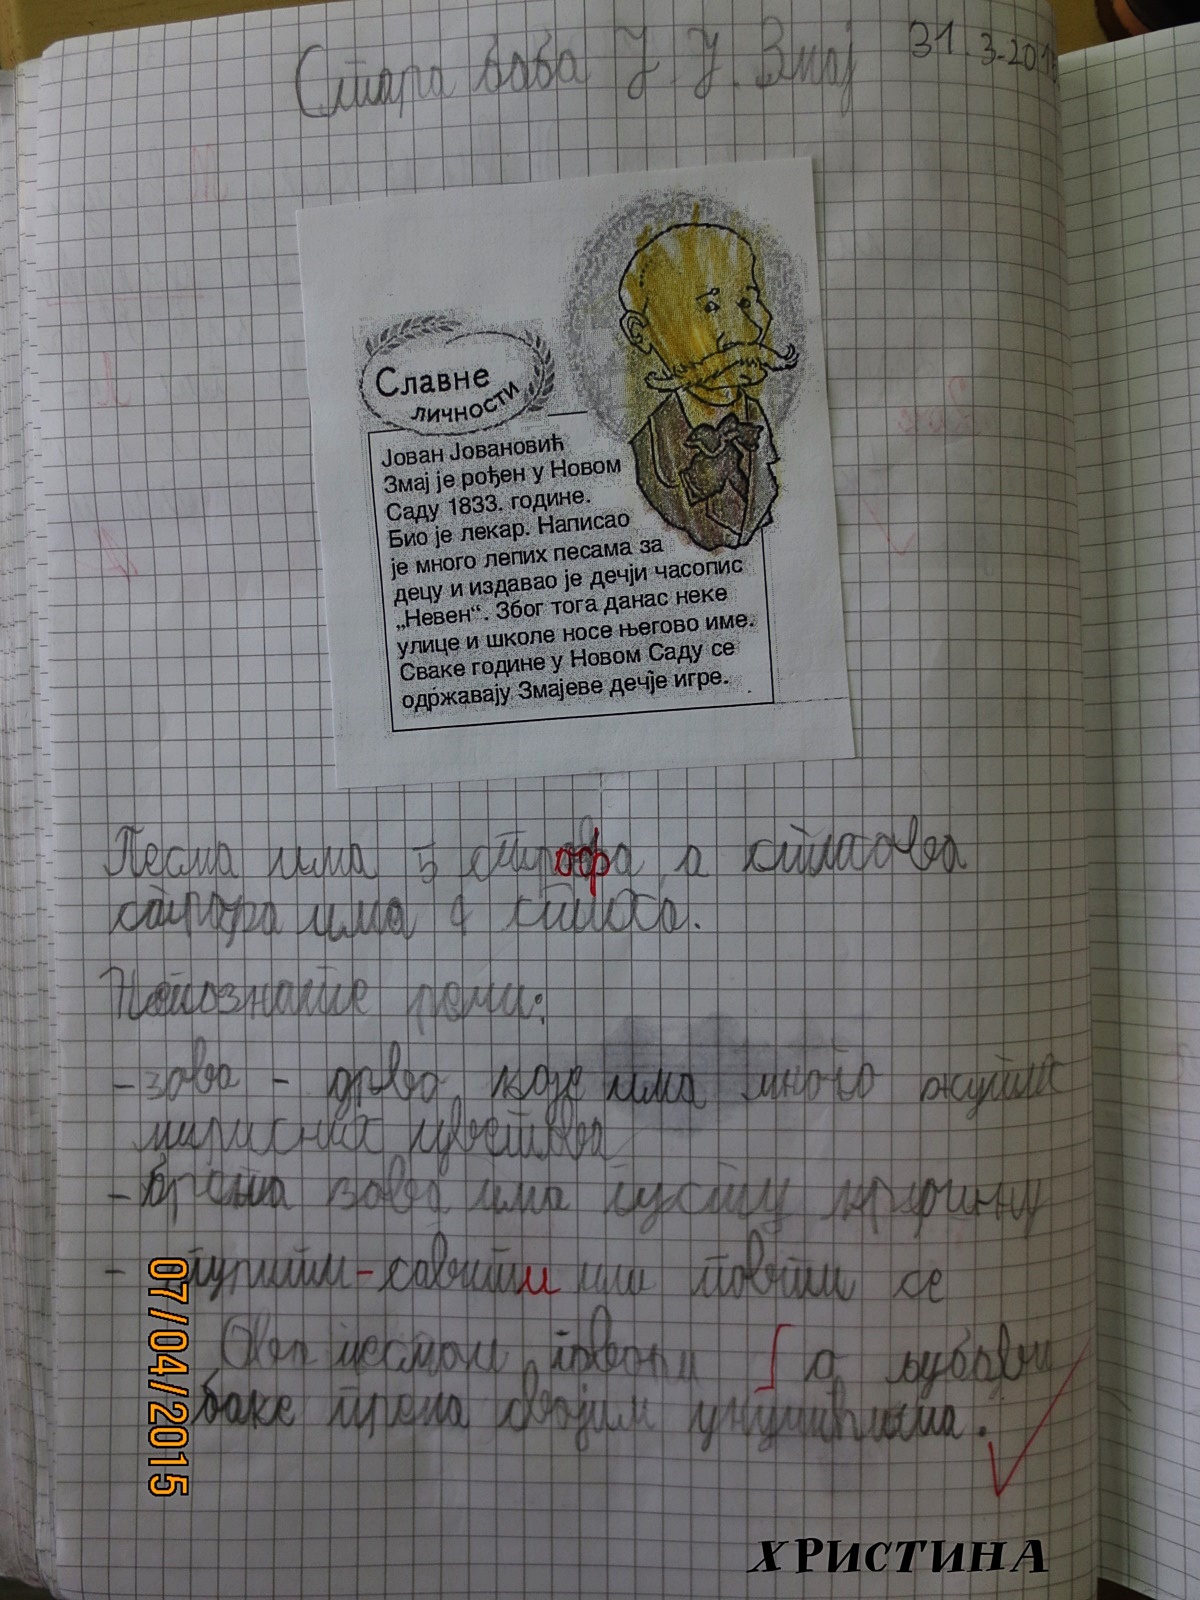 Стара баба Ј. Ј. Змај 31.3.201
Славне
личности
Јован Јовановић
Змај је рођен у Новом
Саду 1833. године.
Био је лекар. Написао
је много лепих песама за
децу и издавао је дечји часопис
„Невен“. Због тога данас неке
улице и школе носе његово име.
Сваке године у Новом Саду се
одржавају Змајеве дечје игре.
Песма има 5 строфа а
има 4 стиха.
Непознате речи:
- зова - дрво које има много жутих
мирисних цветова
- зова има густу
- - савити или повити се
Ова песма говори о љубави
баке према својим унучићима.
07/04/2015
ХРИСТИНА